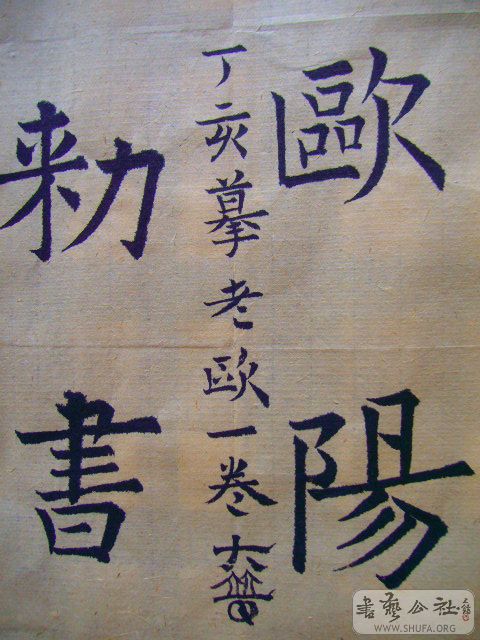 歐陽
丁亥摹老歐一卷
勑書
書藝公社
WWW.SHUFA.ORG